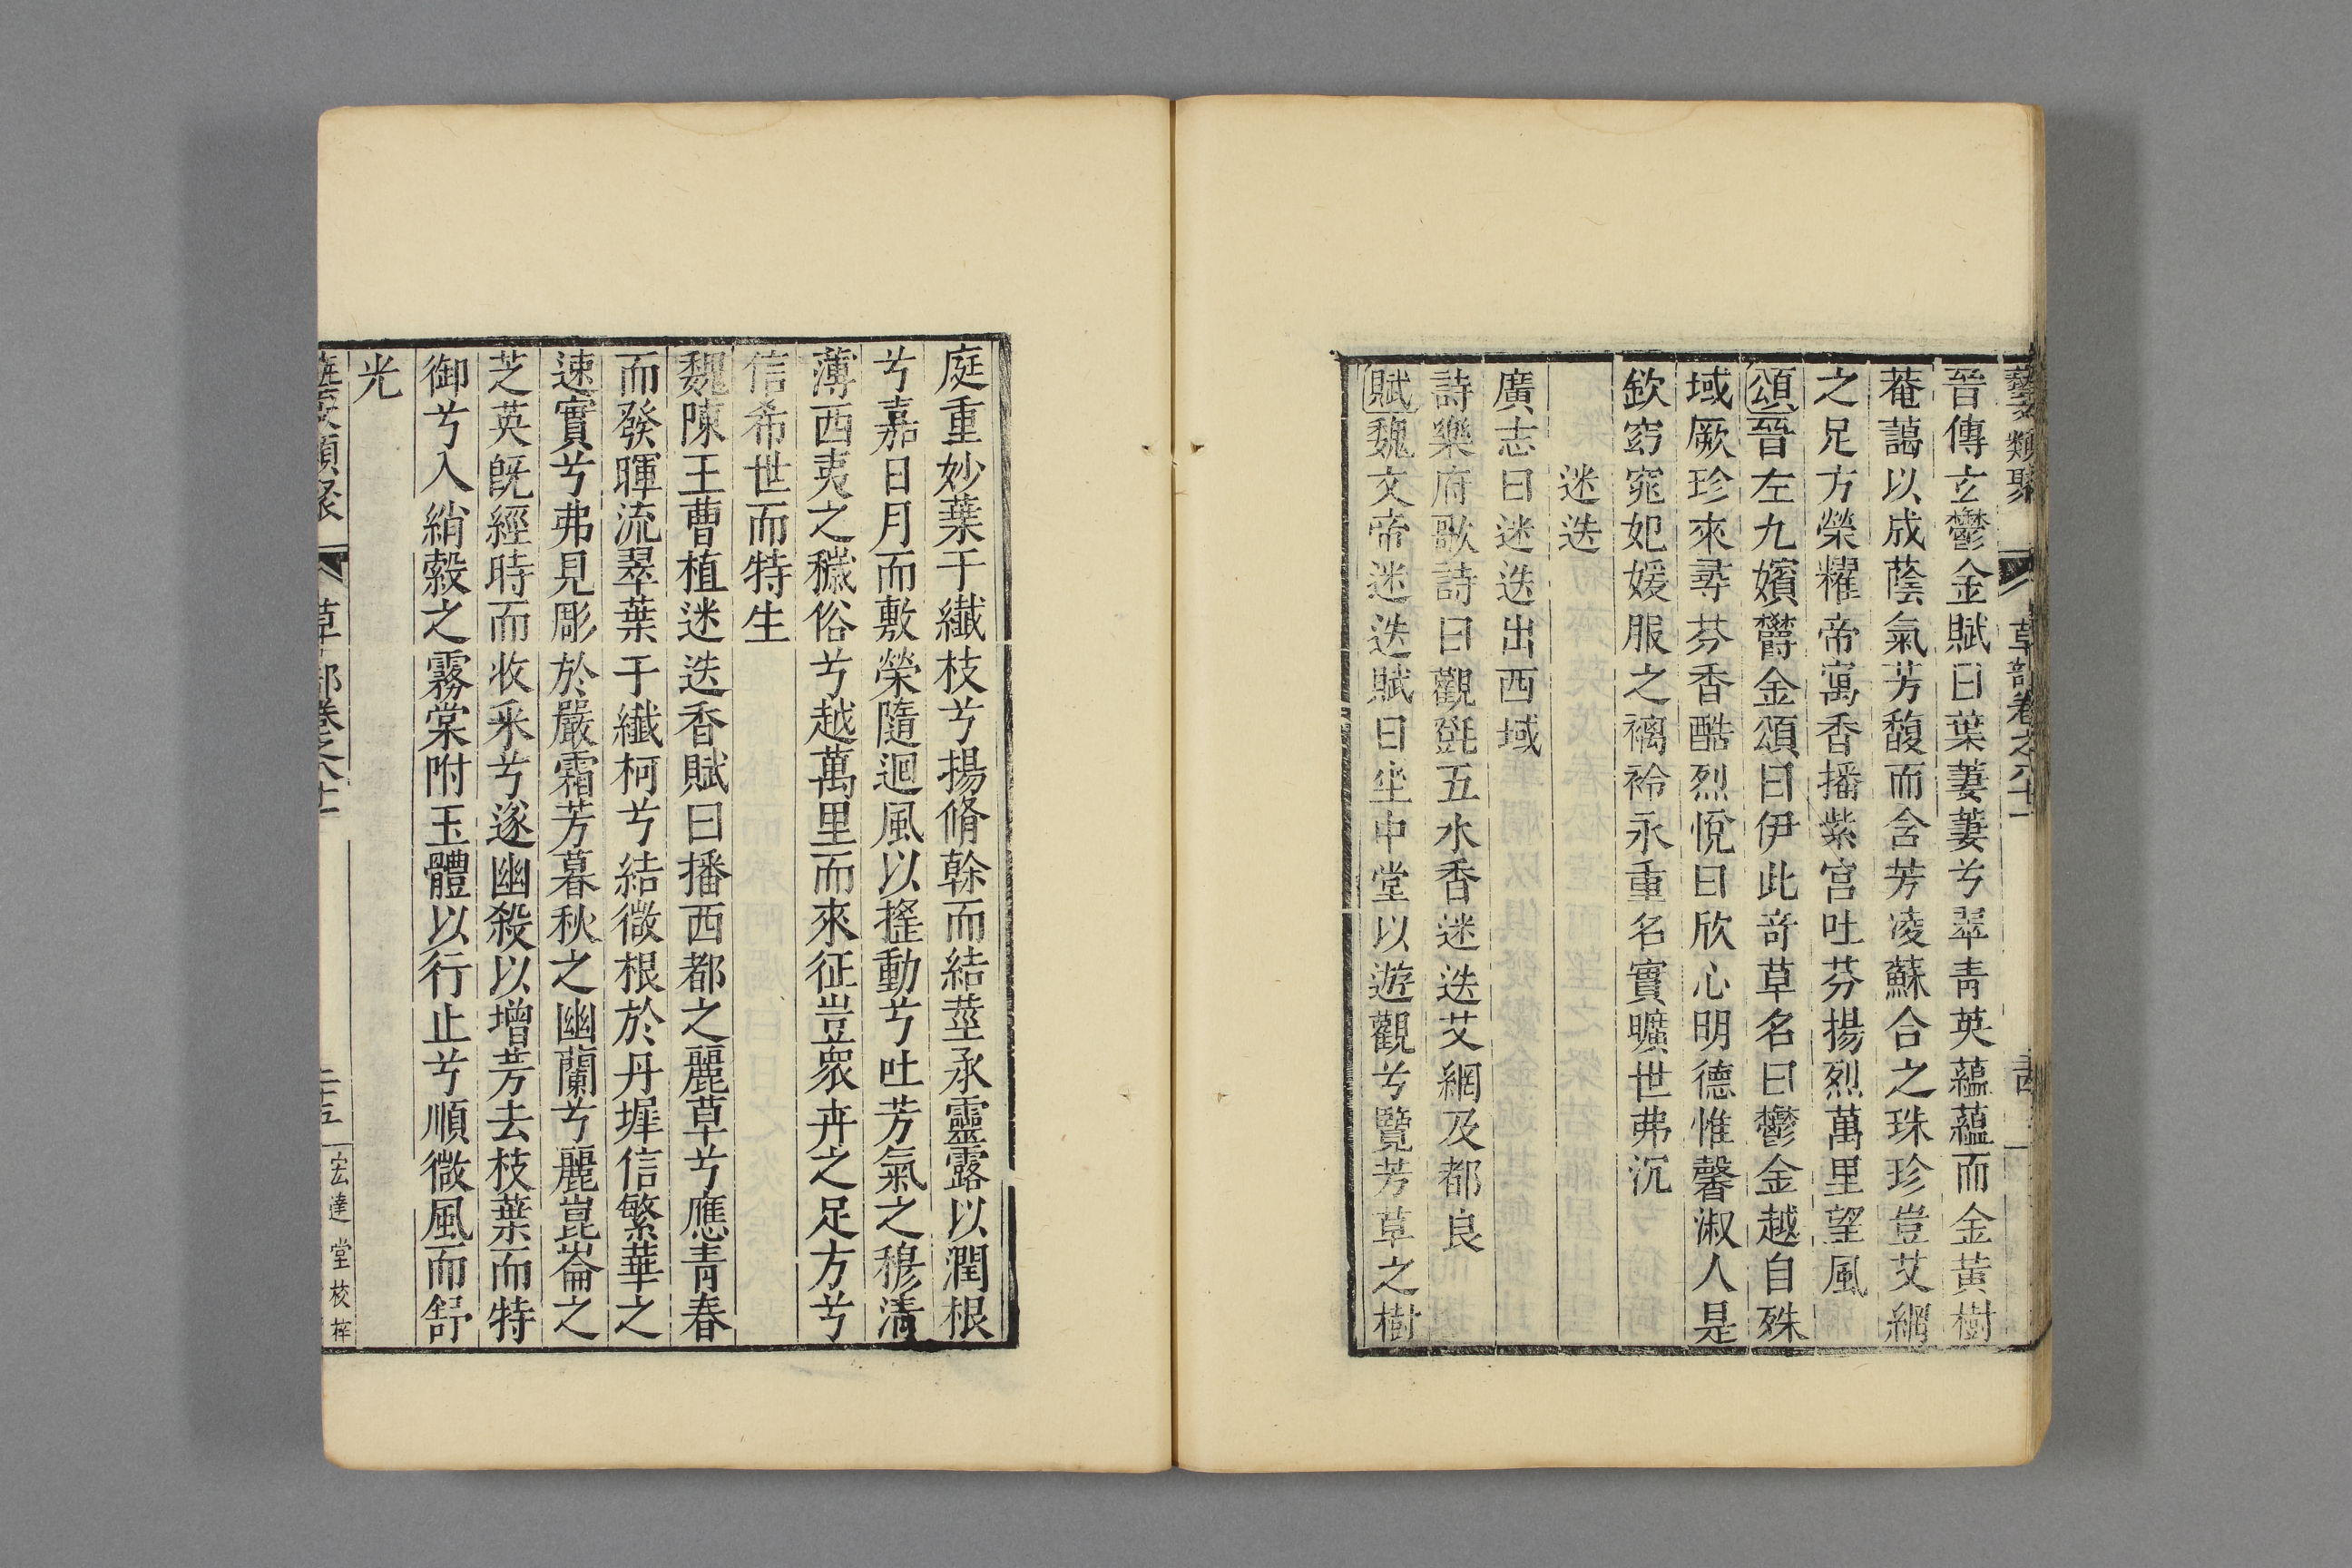 藝文類聚 草部卷之八十一
晉傅玄鬱金賦曰葉萋萋兮翠青英蘊蘊而金黃樹
菴藹以成蔭氣芳馥而含芳凌蘇合之珠珍豈艾網
之足方榮耀帝寓香播紫宮吐芬揚烈萬里望風
頌晉左九嬪欝金頌曰伊此奇草名曰鬱金越自殊
域厥珍來尋芬香酷烈悅曰欣心明德惟馨淑人是
欽窈窕妃媛服之褵衿永重名實曠世弗沉
迷迭
廣志曰迷迭出西域
詩樂府歌詩曰觀㲪五水香迷迭艾網及都良
賦魏文帝迷迭賦曰坐中堂以遊觀兮覽芳草之樹
庭重妙葉于纖枝兮揚脩幹而結莖承靈露以潤根
兮嘉日月而敷榮隨迴風以搖動兮吐芳氣之穆淸
薄西夷之穢俗兮越萬里而來征豈衆卉之足方兮
信希世而特生
魏陳王曹植迷迭香賦曰播西都之麗草兮應青春
而發暉流翠葉于纖柯兮結微根於丹墀信繁華之
速實兮弗見彫於嚴霜芳暮秋之幽蘭兮麗崑崙之
芝英旣經時而收采兮遂幽殺以增芳去枝葉而特
御兮入綃縠之霧棠附玉體以行止兮順微風而舒
光
草部卷之八十一 二十五 宏達堂校梓